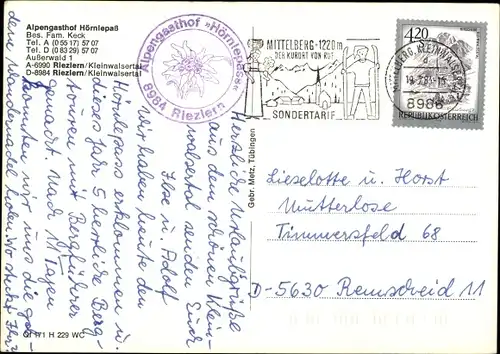 Alpengasthof Hörnlepaß
Bes. Fam. Keck
Tel. A (05517) 5707
D (08329) 5707
Außerwald 1
A-6990 Riezlern/Kleinwalsertal
D-8984 Riezlern/Kleinwalsertal
Alpengasthof »Hörnlepaß«
8984 Riezlern
MITTELBERG - 1220m
DER KURORT VON RUF
SONDERTARIF
MITTELBERG, KLEINWALSERTAL
8986
4,20
REPUBLIK ÖSTERREICH
Herzliche Urlaubsgrüße
aus dem schönen Klein-
walsertal senden Euch
Ilse u. Adolf
Wir haben heute den
Hörnlepass erklommen u.
dieses Jahr 5 herrliche Berg-
touren mit Bergführer
gemacht. Nach 11 Tagen
konnten wir uns die gol-
dene Wandernadel holen.
Gebr. Metz, Tübingen
Lieselotte u. Horst
Mutterlose
Timmersfeld 68
D-5630 Remscheid 11
171 H 229 WC